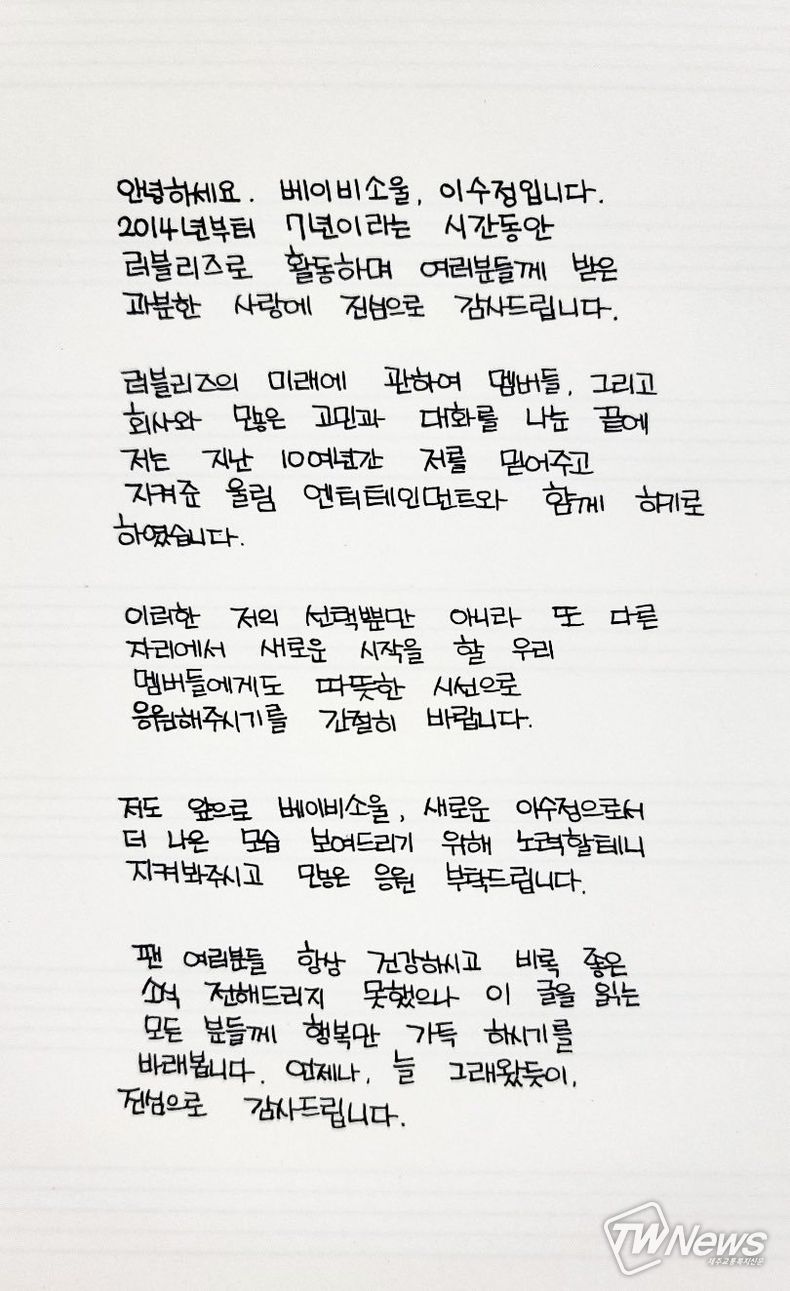 안녕하세요. 베이비소울, 이수정입니다.
2014년부터 7년이라는 시간동안
러블리즈로 활동하며 여러분들께 받은
과분한 사랑에 진심으로 감사드립니다.
러블리즈의 미래에 관하여 멤버들, 그리고
회사와 많은 고민과 대화를 나눈 끝에
저는 지난 10여년간 저를 믿어주고
지켜준 울림 엔터테인먼트와 함께 하기로
하였습니다.
이러한 저의 선택뿐만 아니라 또 다른
자리에서 새로운 시작을 할 우리
멤버들에게도 따뜻한 시선으로
응원해주시기를 간절히 바랍니다.
저도 앞으로 베이비소울, 새로운 이수정으로서
더 나은 모습 보여드리기 위해 노력할테니
지켜봐주시고 많은 응원 부탁드립니다.
팬 여러분들 항상 건강하시고 비록 좋은
소식 전해드리지 못했으나 이 글을 읽는
모든 분들께 행복만 가득 하시기를
바래봅니다. 언제나, 늘 그래왔듯이,
진심으로 감사드립니다.
TWNews
제주교통복지신문